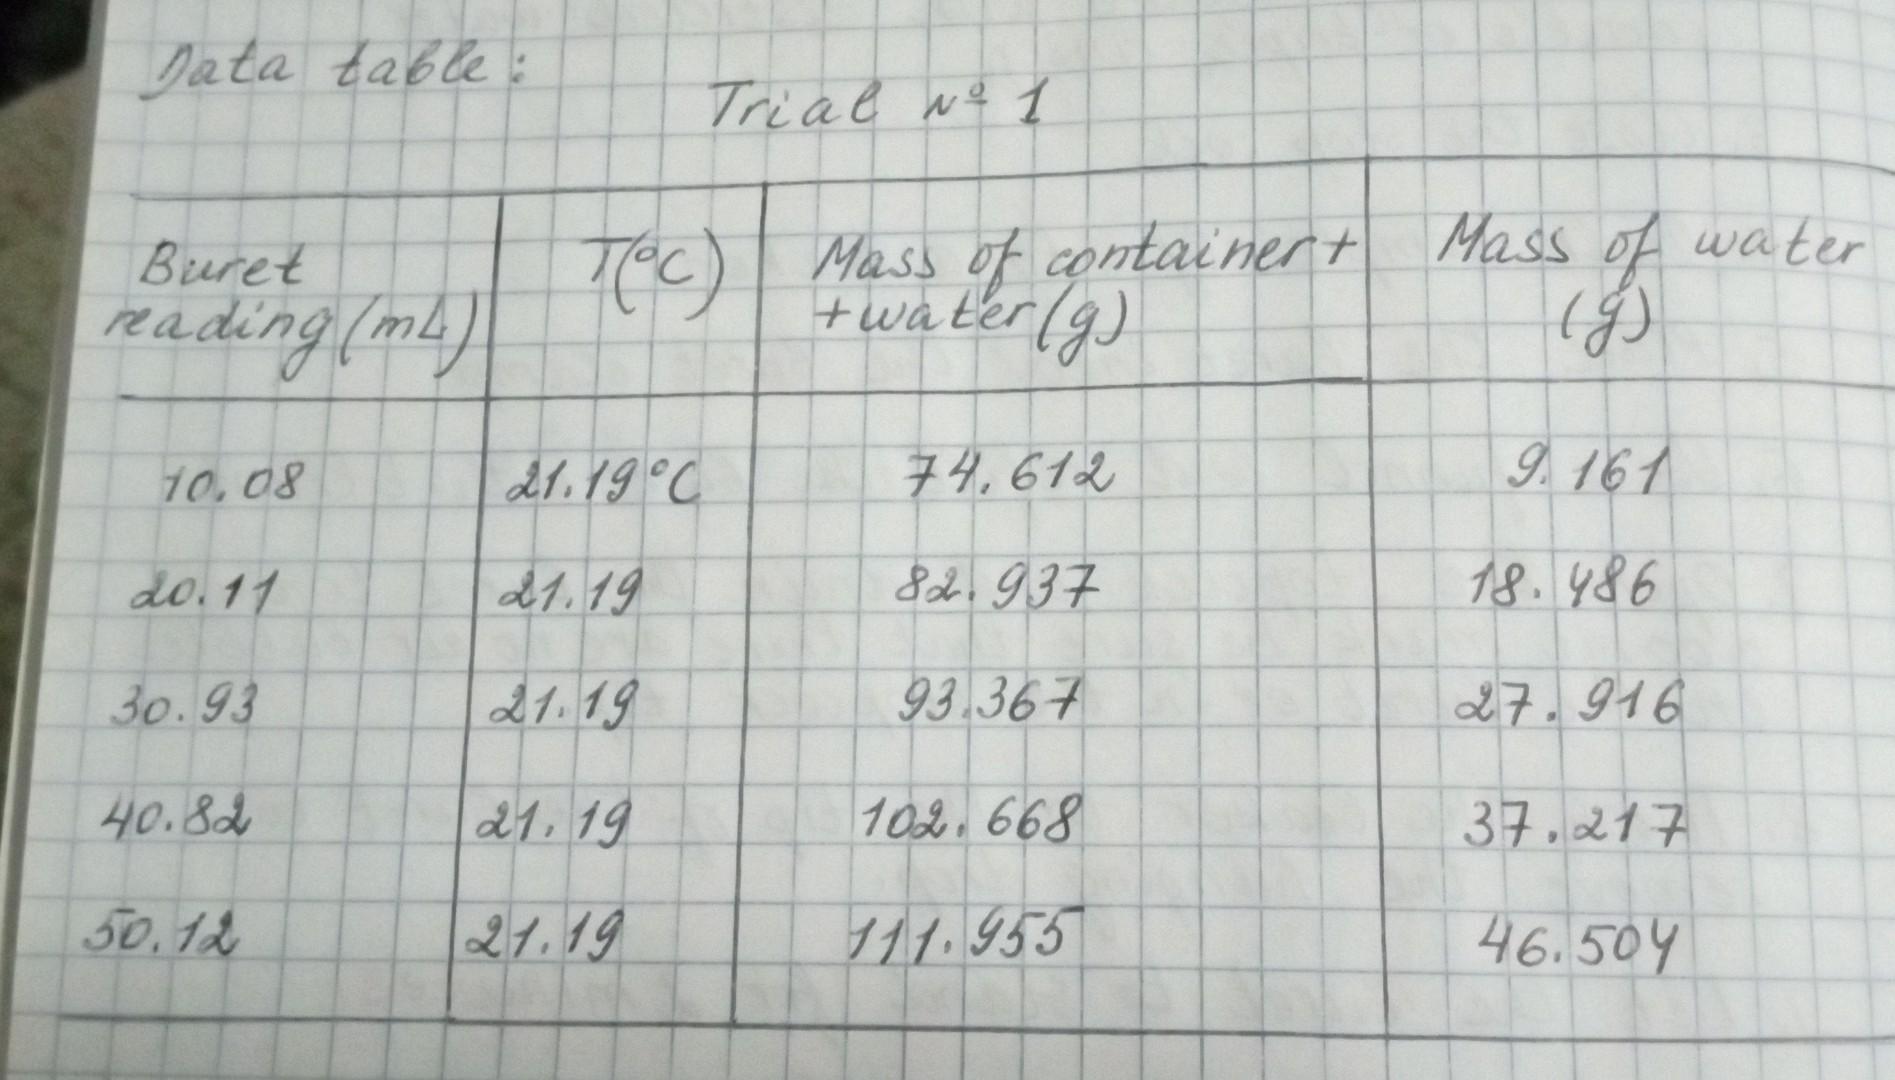 Data table:
Trial № 1
Buret T(°C) Mass of container + Mass of water
reading (mL) + water (g) (g)
10.08 21.19°C 74.612 9.161
20.11 21.19 82.937 18.486
30.93 21.19 93.367 27.916
40.82 21.19 102.668 37.217
50.12 21.19 111.955 46.504